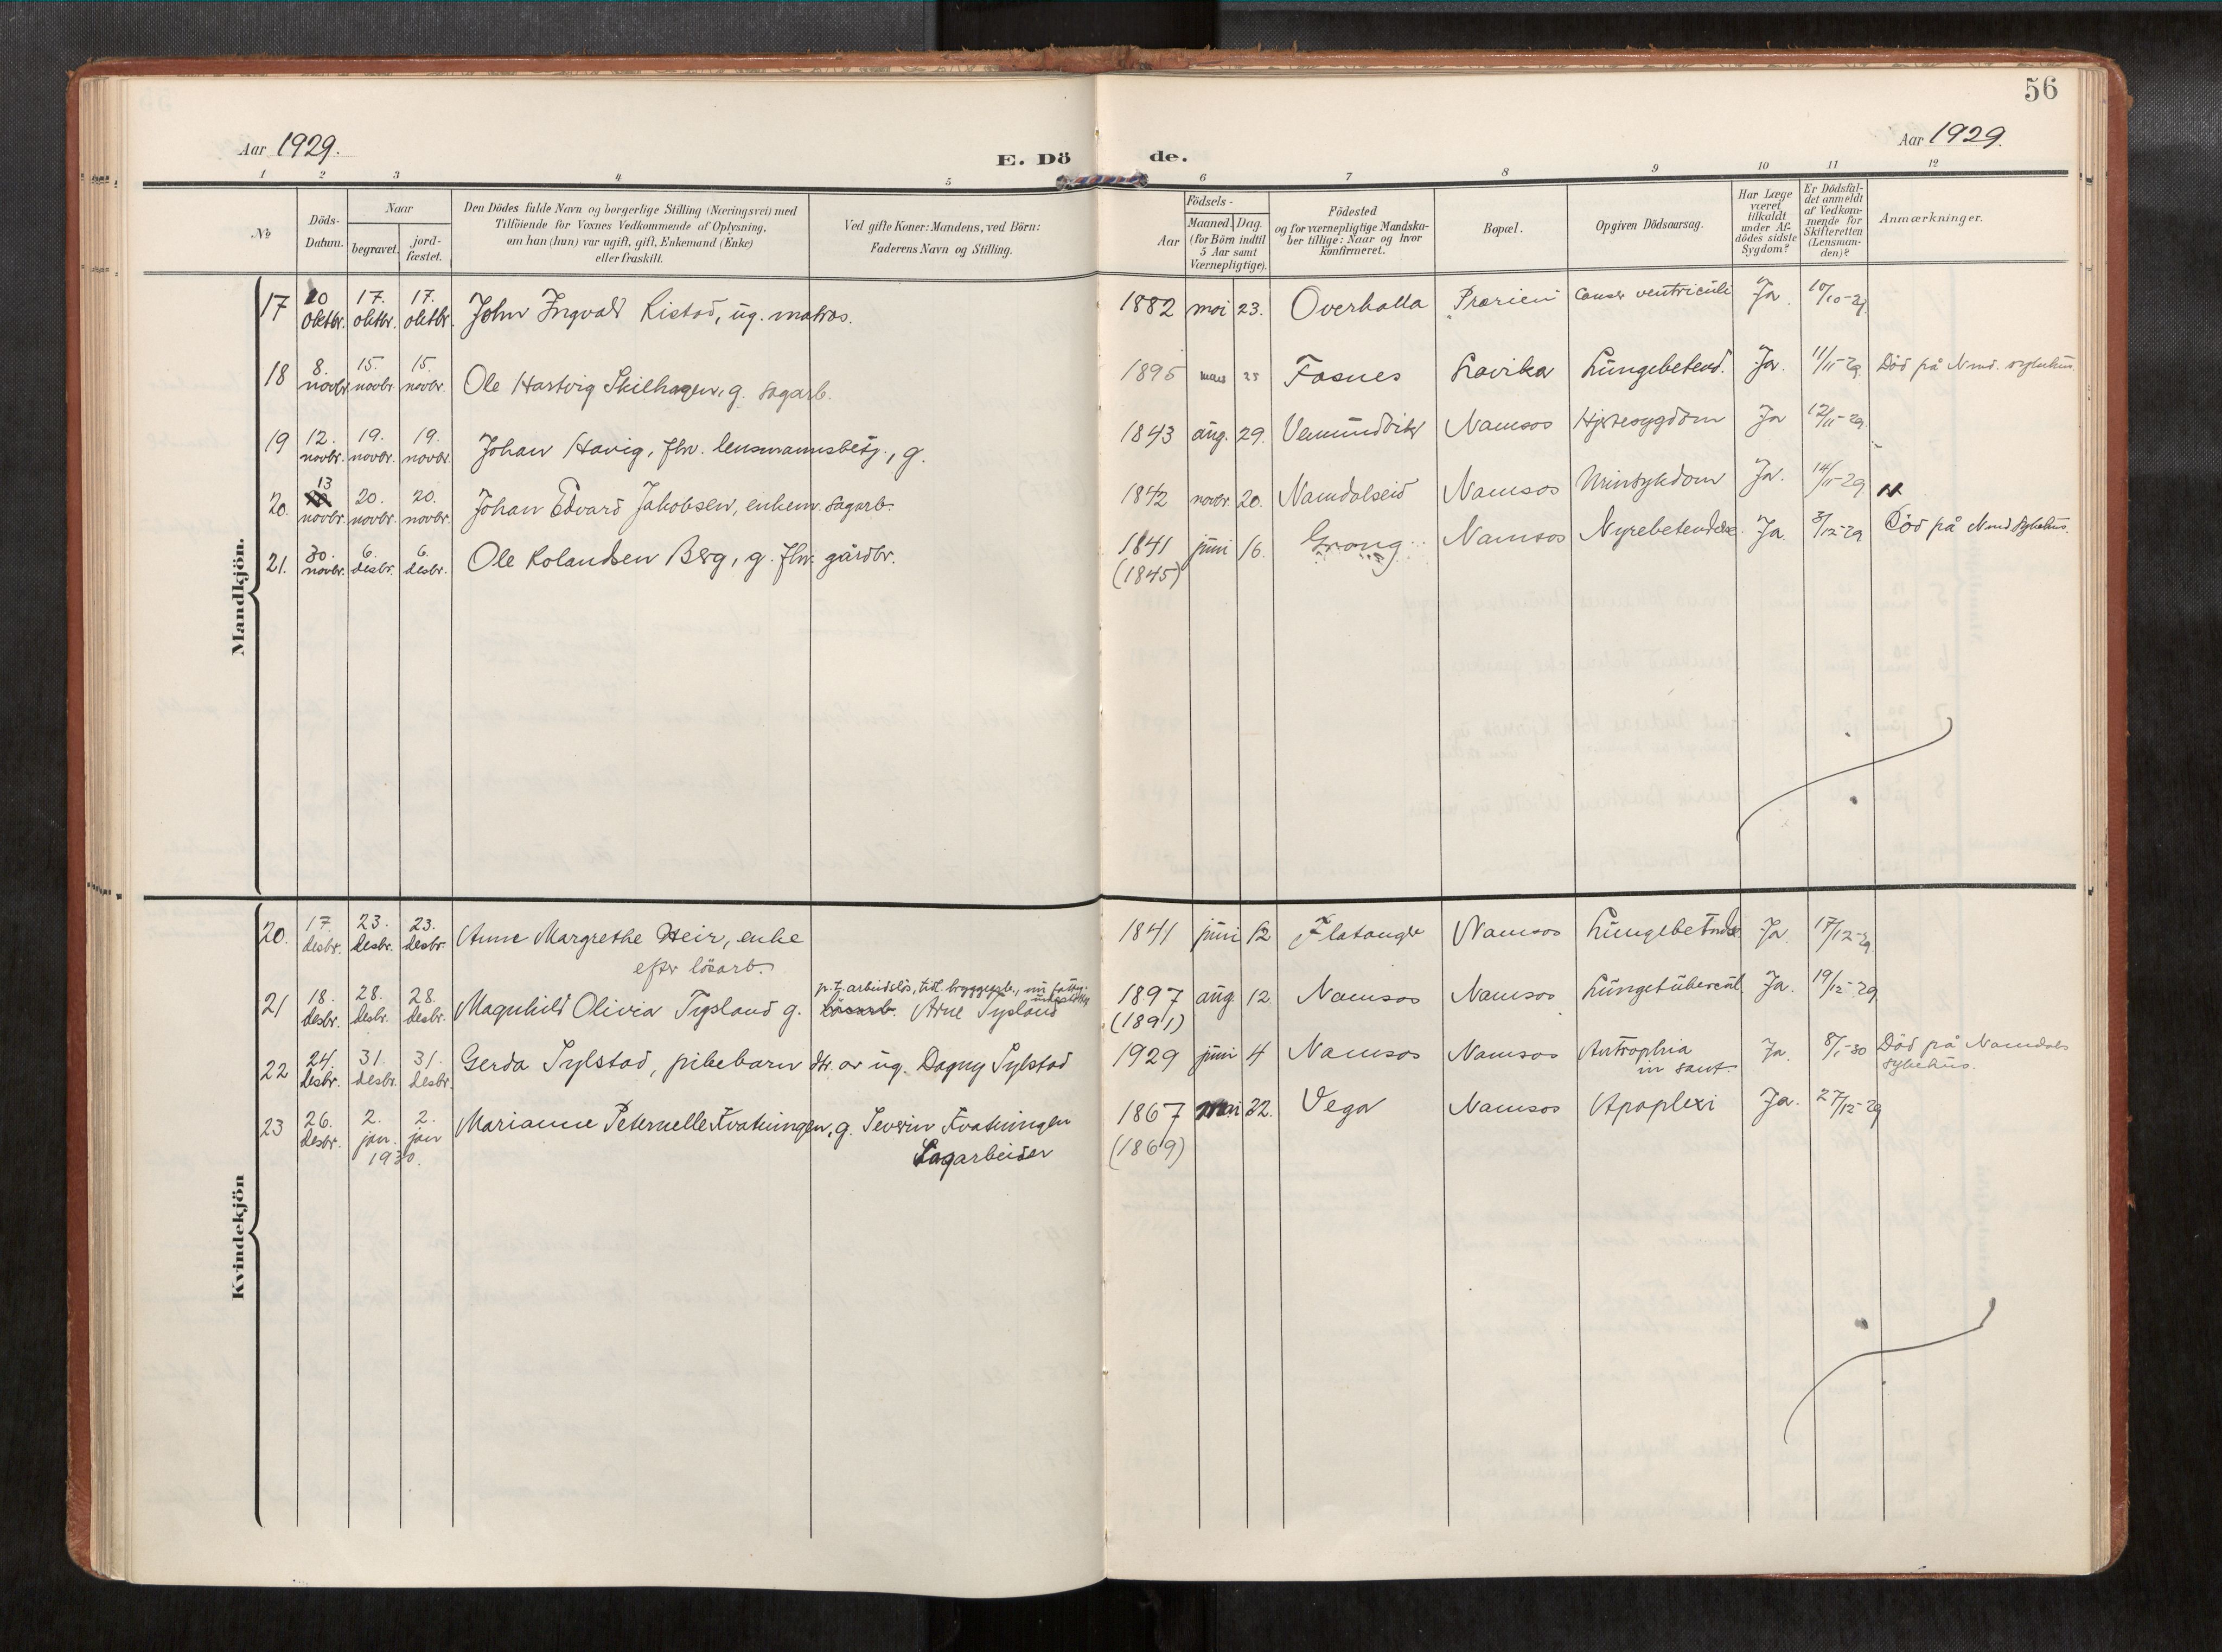 56
Aar 1929.
Aar 1929.
E. Dö de.
1 2 3 4 5 6 7 8 9 10 11 12
No
Döds-
Datum.
Naar
begravet.
jord-
fæstet.
Den Dödes fulde Navn og borgerlige Stilling (Næringsvei) med
Tilföiende for Voxnes Vedkommende af Oplysning,
om han (hun) var ugift, gift, Enkemand (Enke)
eller fraskilt.
Ved gifte Koner: Mandens, ved Börn:
Faderens Navn og Stilling.
Födsels-
Aar
Maaned.
Dag.
(for Börn indtil
5 Aar samt
Værnepligtige).
Födested
og for værnepligtige Mandska-
ber tillige: Naar og hvor
konfirmeret.
Bopæl.
Opgiven Dödsaarsag.
Har Læge
været
tilkaldt
under Af-
dödes sidste
Sygdom?
Er Dödsfal-
det anmeldt
af Vedkom-
mende for
Skifteretten
(Lensman-
den)?
Anmærkninger.
Mandkjön.
17 10 oktbr. 17. oktbr. 17. oktbr. John Ingvald Ristad, ug. matros. 1882 mai 23. Overhalla Prærien cancer ventriculi Ja. 10/10-29
18 8. novbr. 15. novbr. 15. novbr. Ole Hartvig Skilhagen, g. sagarb. 1895 mars 25 Fosnes Lavika Lungebetend. Ja. 11/11-29. Död på Namd. sykehus.
19 12. novbr. 19. novbr. 19. novbr. Johan Havig, fhv. lensmannsbetj., g. 1843 aug. 29. Vemundvik Namsos Hjertesygdom Ja 12/11-29.
20. 13 novbr. 20. novbr. 20. novbr. Johan Edvard Jakobsen, enkem. sagarb. 1842 novbr. 20. Namdalseid Namsos Urinsykdom Ja. 14/11-29
21. 30. novbr. 6. desbr. 6. desbr. Ole Rolandsen Berg, g. fhv. gårdbr. 1841 juni 16. Grong Namsos Nyrebetendelse Ja 3/12-29 Död på Namd. sykehus.
(1845)
Kvindekjön
20. 17. desbr. 23. desbr. 23. desbr. Anne Margrethe Heir, enke 1841 juni 12 Flatanger Namsos Lungebetendelse Ja. 17/12-29
efter lösarb.
p.t. arbeidslös, tidl. bryggearb., nu fattig-
understöttet
21 18. desbr. 28. desbr. 28. desbr. Magnhild Olivia Tysland g. lösarb. Arne Tysland 1897 aug. 12. Namsos Namsos Lungetubercul. Ja. 19/12-29
(1891)
22 24. desbr. 31. desbr. 31. desbr. Gerda Sylstad, pikebarn dtr. av ug. Dagny Sylstad 1929 juni 4 Namsos Namsos Antrophia Ja. 8/1-30 Död på Namdals
sykehus.
23 26. desbr. 2. jan. 2. jan Marianne Peternelle Kvatningen, g. Severin Kvatningen 1867 mai 22. Vega Namsos Apoplexi Ja. 27/12-29
1930. Sagarbeider (1869)